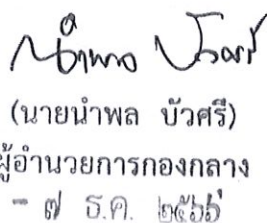 (นายนำพล บัวศรี)
ผู้อำนวยการกองกลาง
- ๗ ธ.ค. ๒๕๖๖